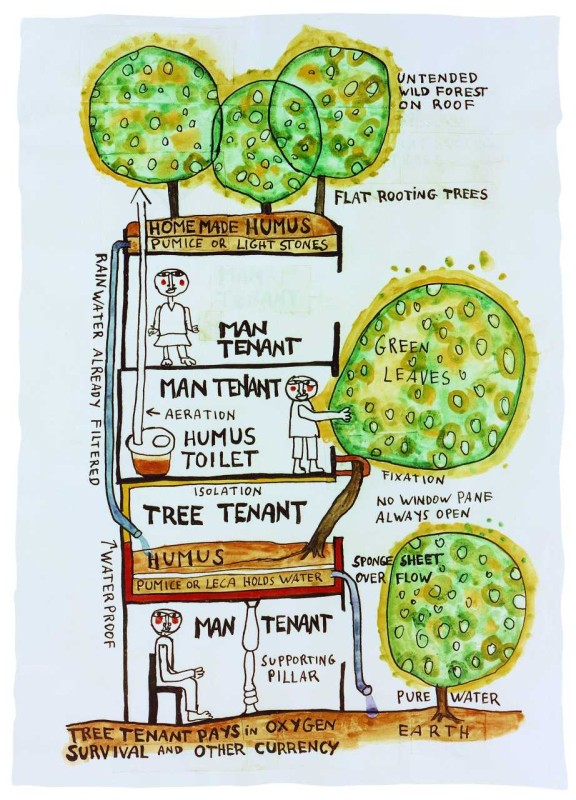 UNTENDED
WILD FOREST
ON ROOF
FLAT ROOTING TREES
HOME MADE HUMUS
PUMICE OR LIGHT STONES
RAINWATER ALREADY FILTERED
MAN
TENANT
MAN TENANT
AERATION
HUMUS
TOILET
GREEN
LEAVES
FIXATION
NO WINDOW PANE
ALWAYS OPEN
ISOLATION
TREE TENANT
HUMUS
PUMICE OR LECA HOLDS WATER
SPONGE SHEET
OVER FLOW
WATERPROOF
MAN TENANT
SUPPORTING
PILLAR
PURE WATER
EARTH
TREE TENANT PAYS in OXYGEN
SURVIVAL AND OTHER CURRENCY